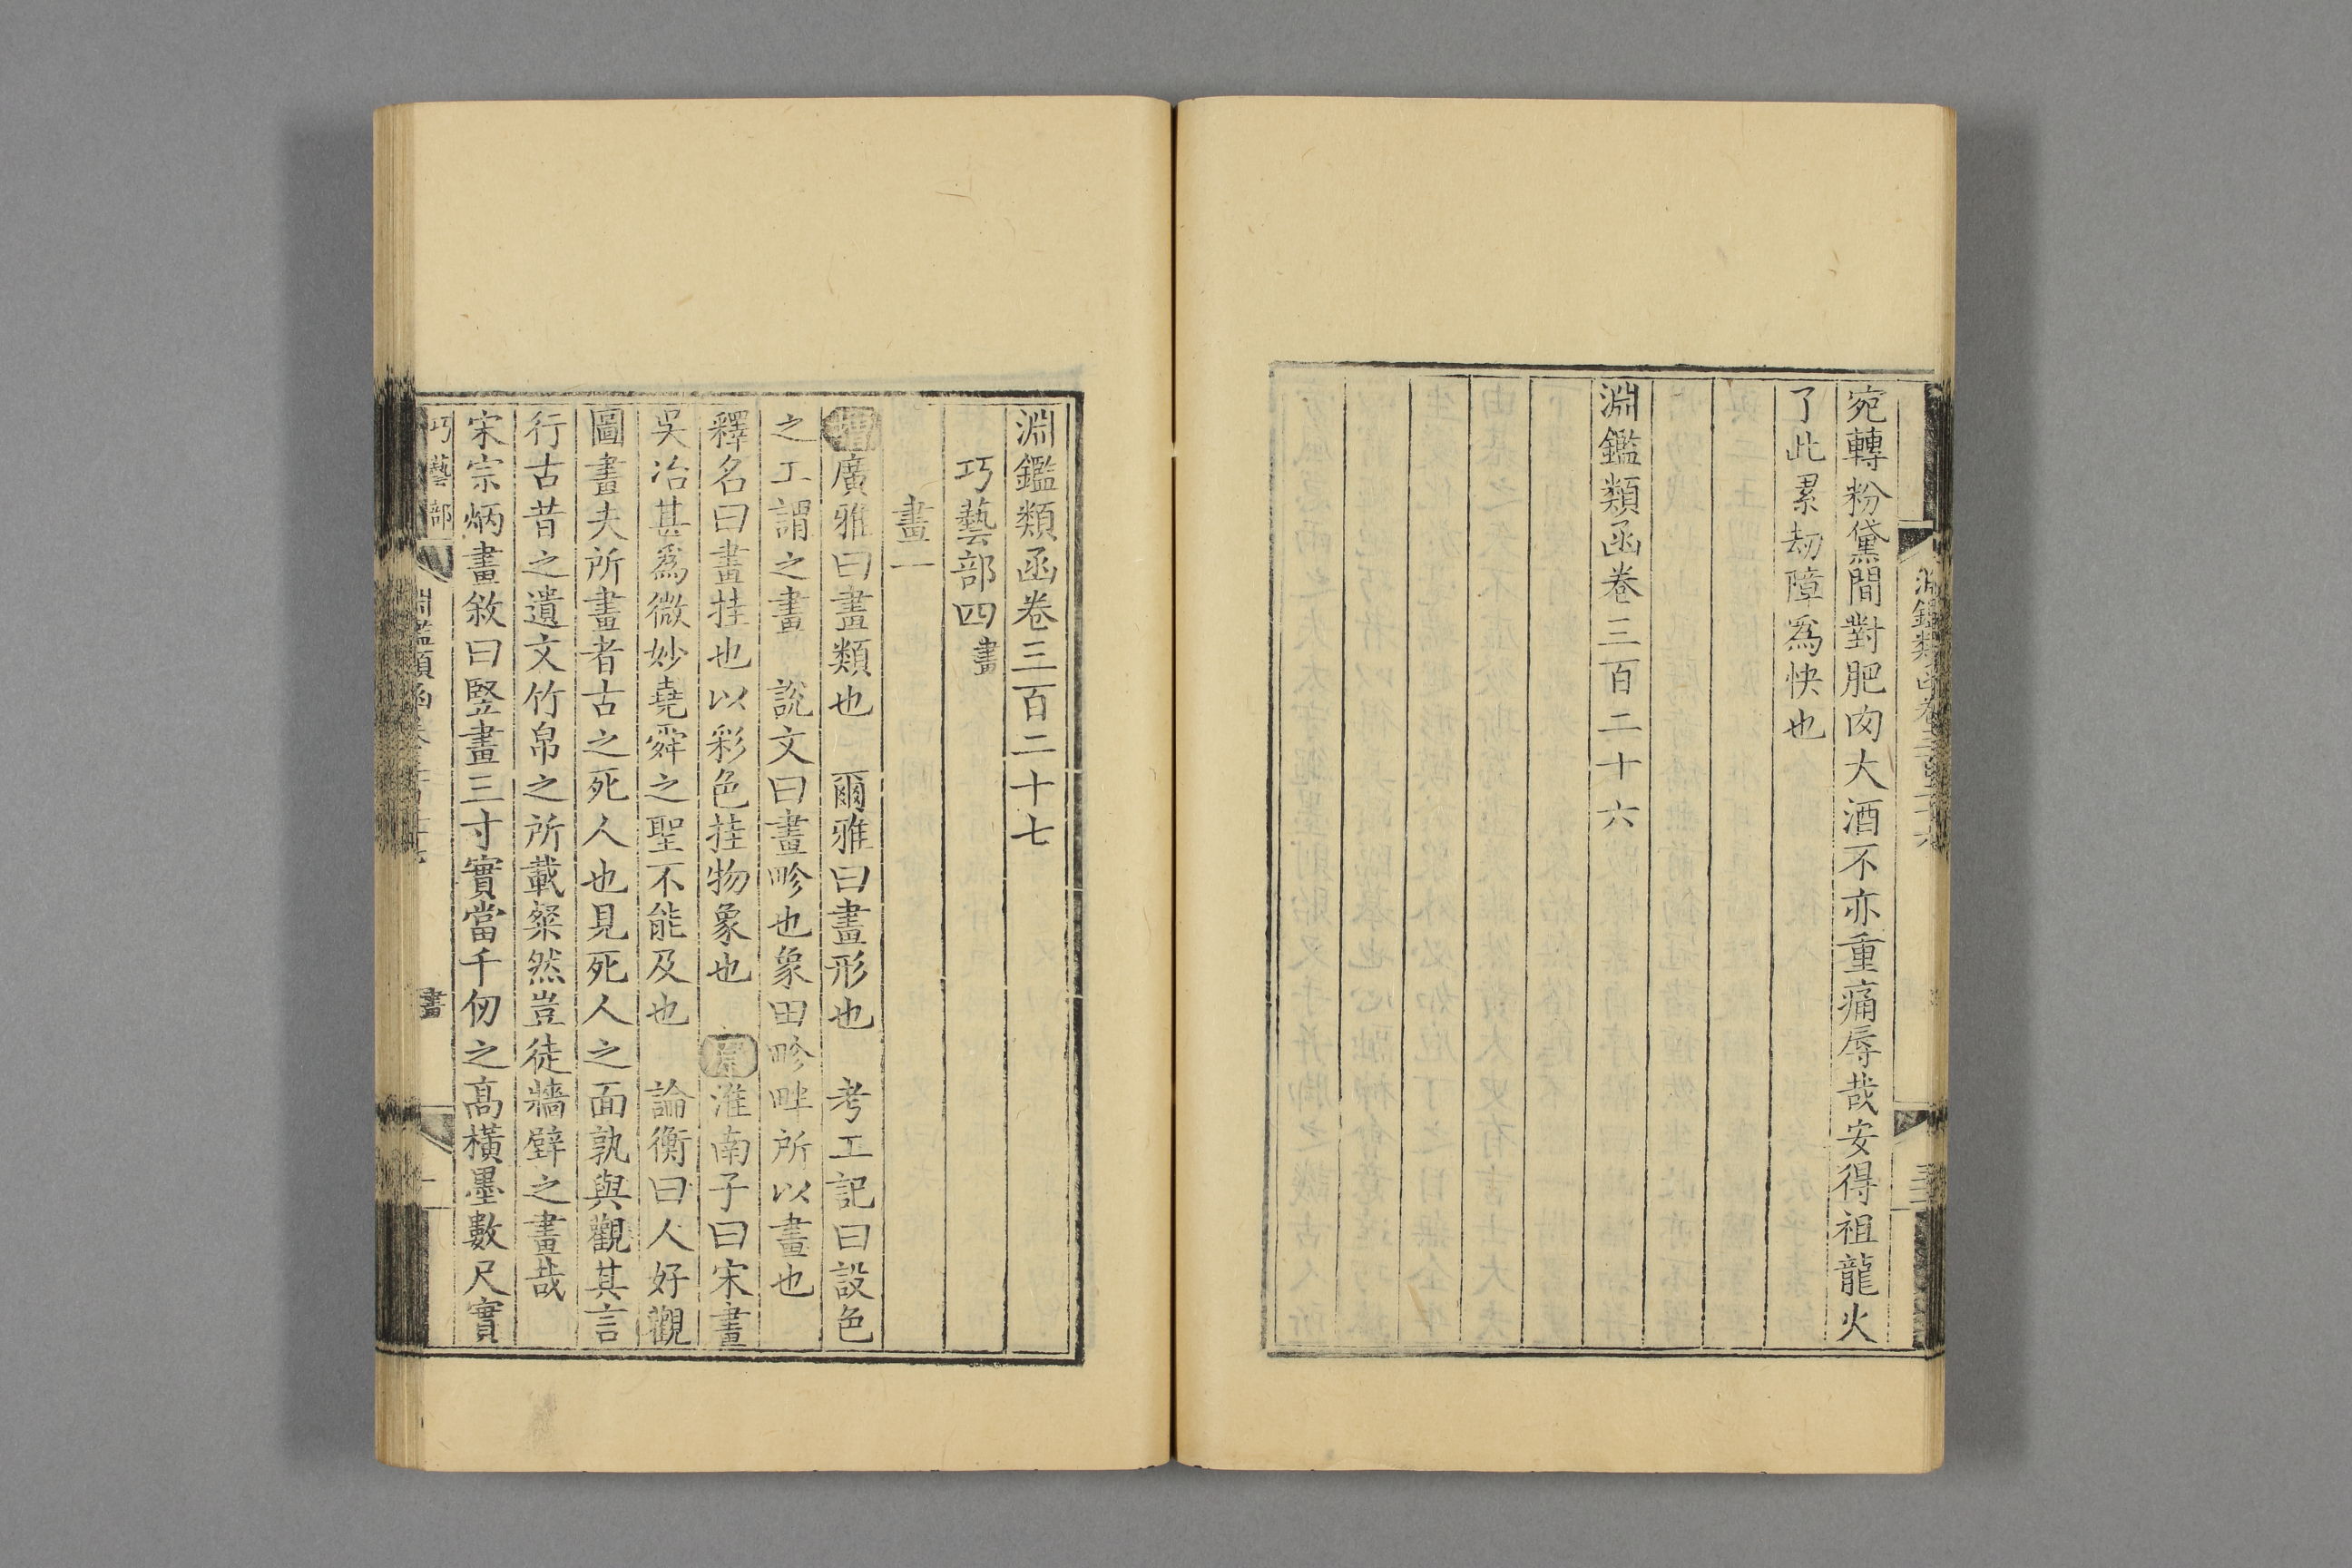 宛轉粉黛間對肥肉大酒不亦重痛辱哉安得祖龍火
了此累劫障爲快也
淵鑑類函卷三百二十六
淵鑑類函卷三百二十七
巧藝部四畫
畫一
增廣雅曰畫類也 爾雅曰畫形也 考工記曰設色
之工謂之畫 說文曰畫畛也象田畛畔所以畫也
釋名曰畫挂也以彩色挂物象也 原淮南子曰宋畫
吳冶甚爲微妙堯舜之聖不能及也 論衡曰人好觀
圖畫夫所畫者古之死人也見死人之面孰與觀其言
行古昔之遺文竹帛之所載粲然豈徒牆壁之畫哉
宋宗炳畫敘曰竪畫三寸實當千仞之高橫墨數尺實
巧藝部 畫